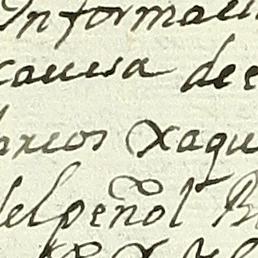 Informaci
causa de e
arcos xaqu
del peñol B